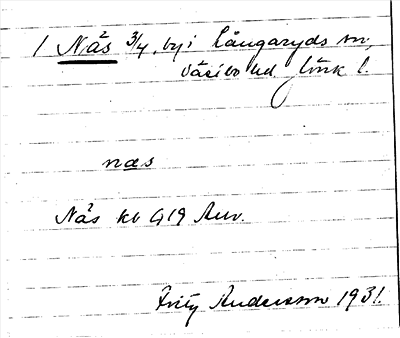 1 Nås ¾, by i Långaryds sn,
Västbo hd. Jönk l.
næs
Nås kb G 19 Auv.
Fritz Andersson 1931.